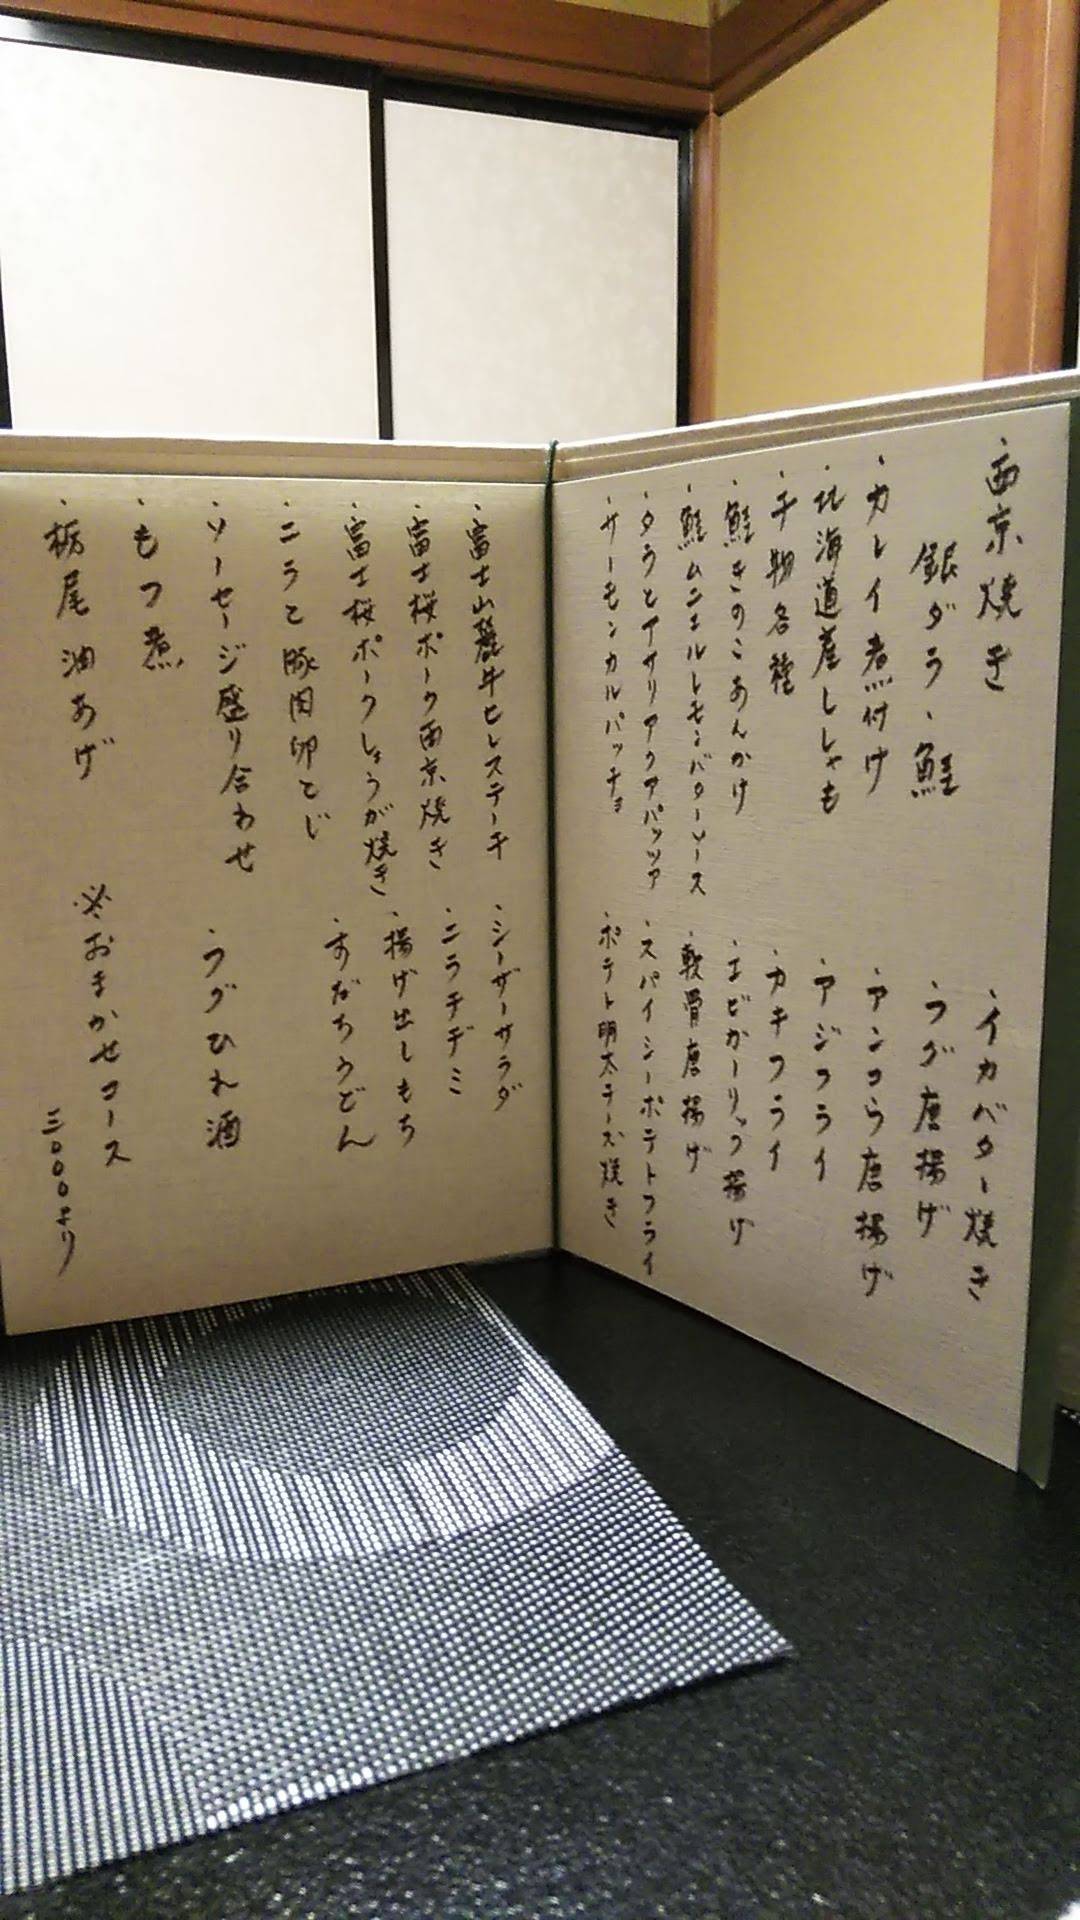 ・西京焼き
銀ダラ・鮭
・カレイ煮付け
・北海道産ししゃも
・干物各種
・鮭きのこあんかけ
・鮭ムニエルレモンバターソース
・タラとアサリアクアパッツア
・サーモンカルパッチョ
・イカバター焼き
・フグ唐揚げ
・アンコウ唐揚げ
・アジフライ
・カキフライ
・エビガーリック揚げ
・軟骨唐揚げ
・スパイシーポテトフライ
・ポテト明太チーズ焼き
・富士山麓牛ヒレステーキ
・富士桜ポーク西京焼き
・富士桜ポークしょうが焼き
・ニラと豚肉卵とじ
・ソーセージ盛り合わせ
・もつ煮
・栃尾油あげ
・シーザーサラダ
・ニラチヂミ
・揚げ出しもち
・すだちうどん
・フグひれ酒
※おまかせコース
三〇〇〇より